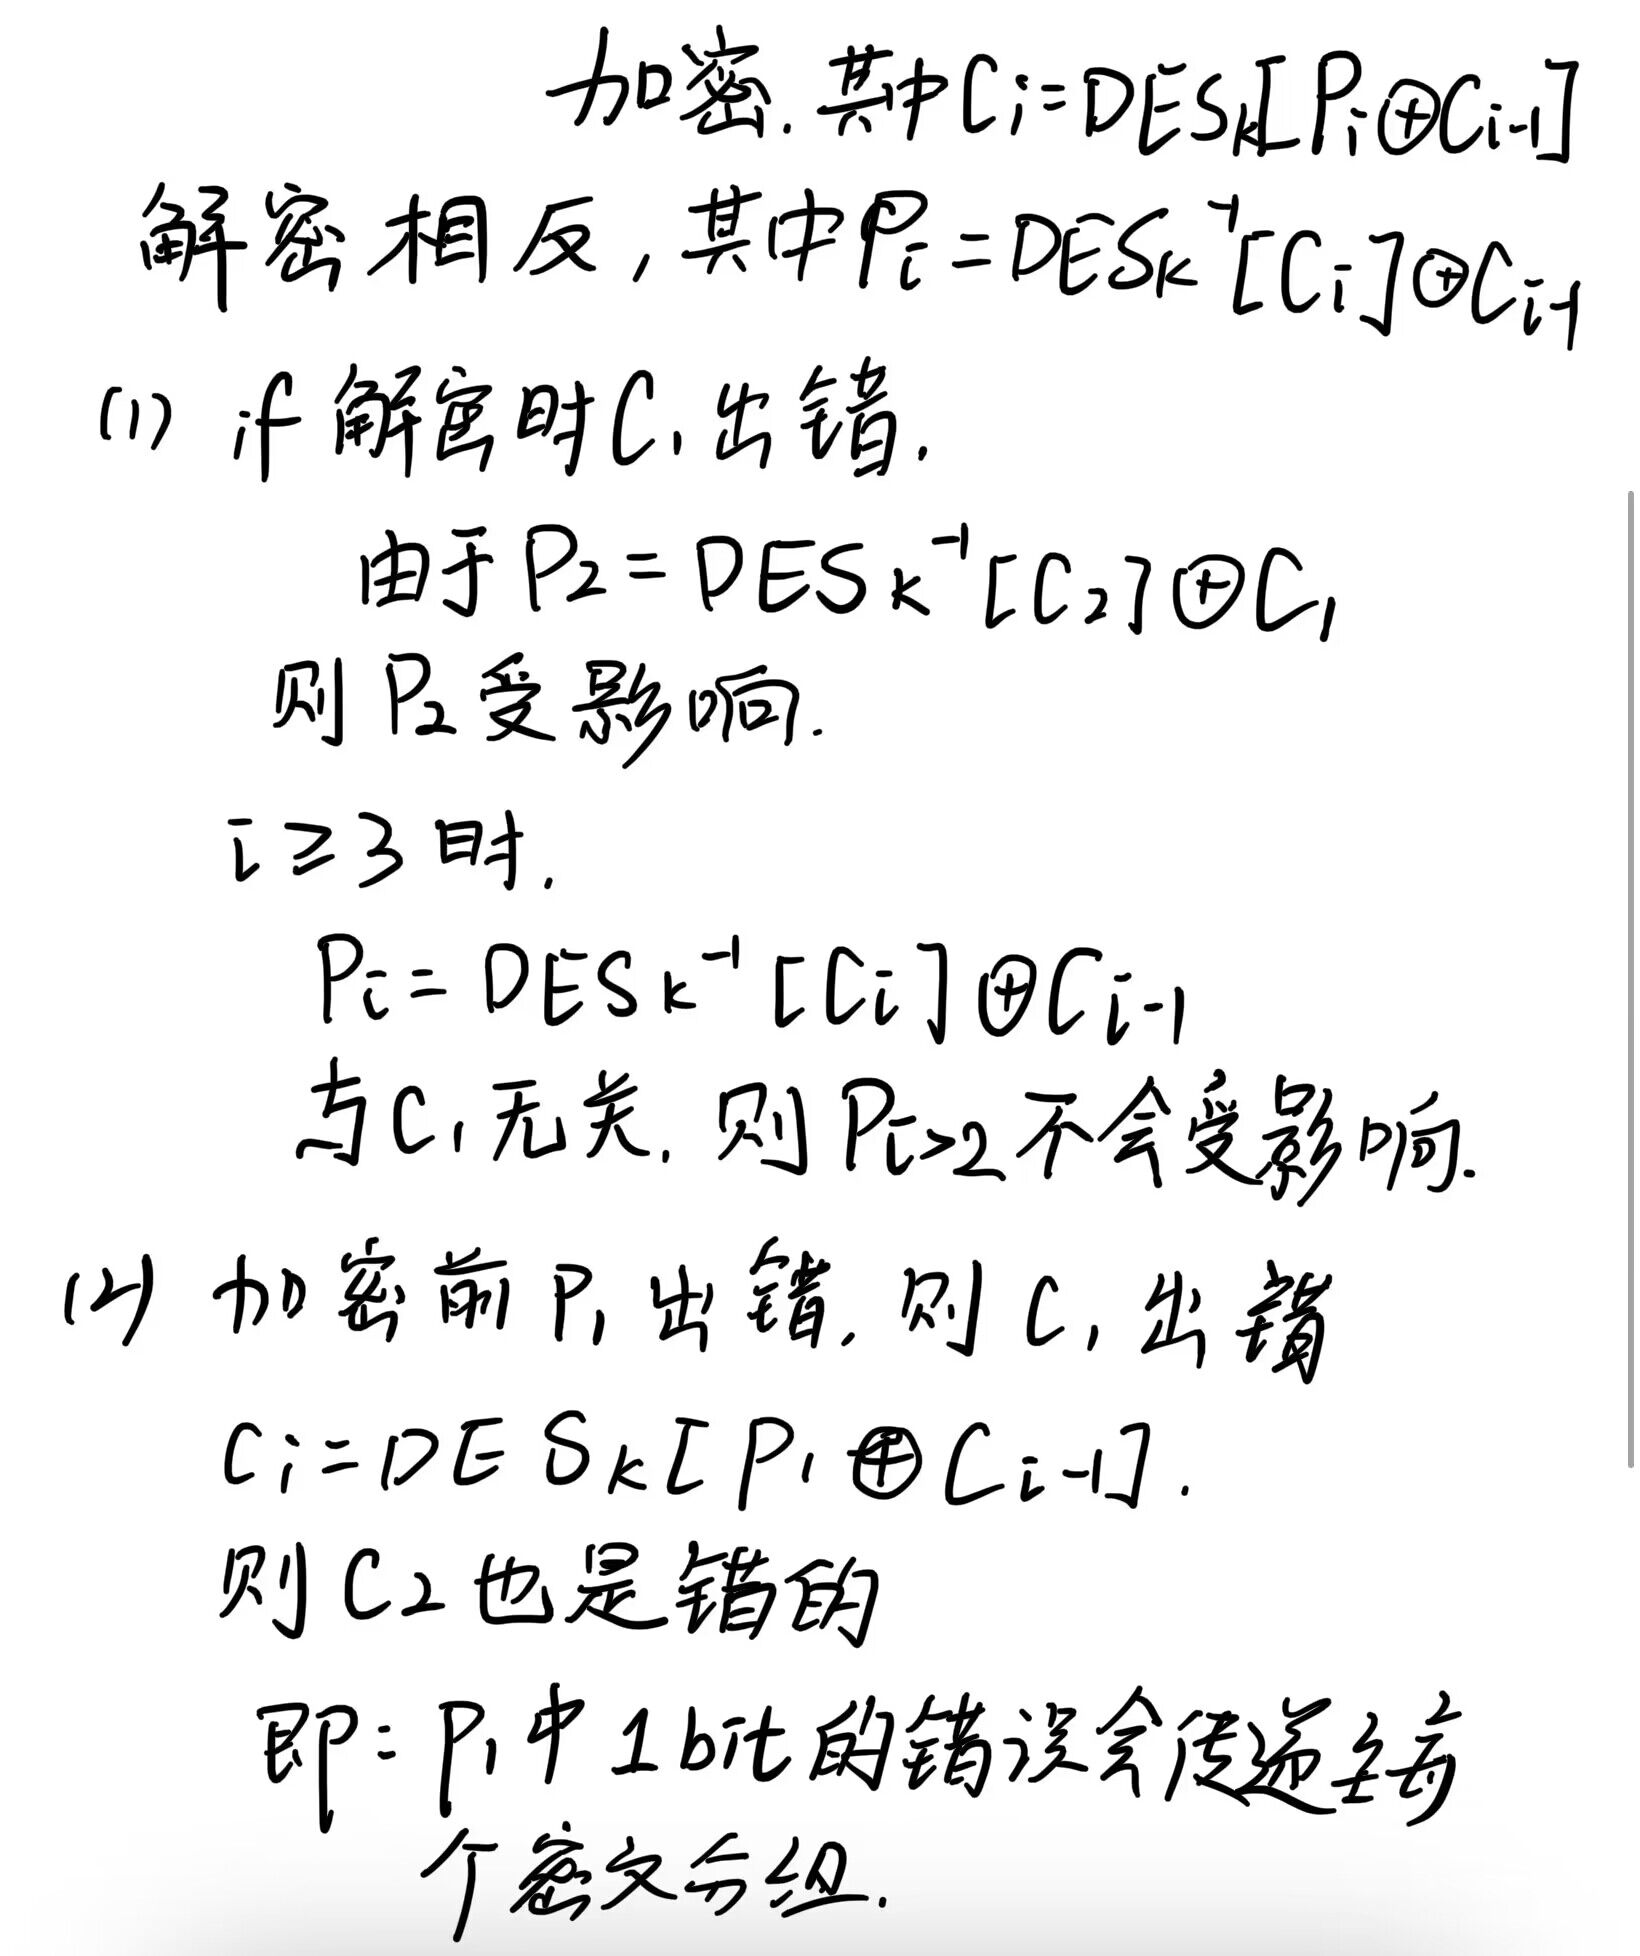 加密. 其中Ci=DESk[Pi⊕Ci-1]
解密相反,其中Pi=DESk⁻¹[Ci]⊕Ci-1
(1) if解密时C1出错.
由于P2=DESk⁻¹[C2]⊕C1
则P2受影响.
i≥3时.
Pi=DESk⁻¹[Ci]⊕Ci-1
与C1无关. 则Pi>2不会受影响.
(2) 加密前P1出错. 则C1出错
Ci=DESk[P1⊕Ci-1].
则C2也是错的
即: P1中1bit的错误会传递至每
个密文分组.